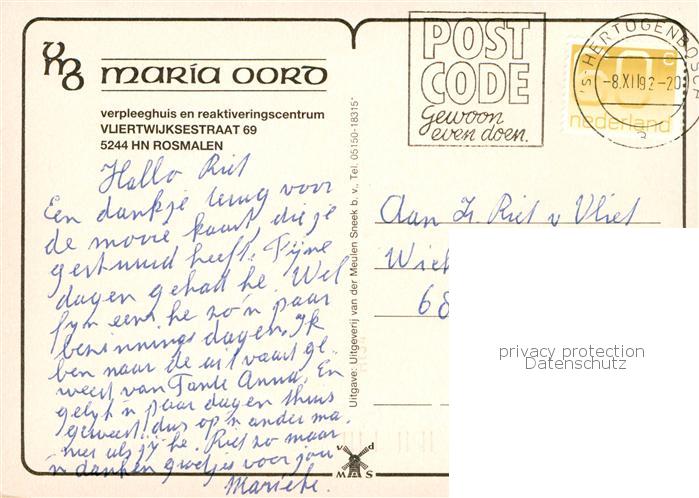 vmo
maría oord
verpleeghuis en reaktiveringscentrum
VLIERTWIJKSESTRAAT 69
5244 HN ROSMALEN
Hallo Riet
Een dankje terug voor
de mooie kaart, die je
gestuurd heeft. Fijne
dagen gehad he. Wel
fyn eens he zo'n paar
bezinnings dagen. Ik
ben naar de uitvaart ge
weest van Tante Anna. En
gelyk 'n paar dagen thuis
geweest dus op 'n ander ma.
nier als jy he. Riet zo maar
'n danken groetjes voor jou
Marieke.
Uitgave: Uitgeverij van der Meulen Sneek b.v., Tel. 05150-18315*
POST
CODE
Gewoon
even doen.
's-HERTOGENBOSCH
-8.XII92-20
60 c
nederland
Aan Zr Riet v Vliet
68
privacy protection
Datenschutz
v d
MAS